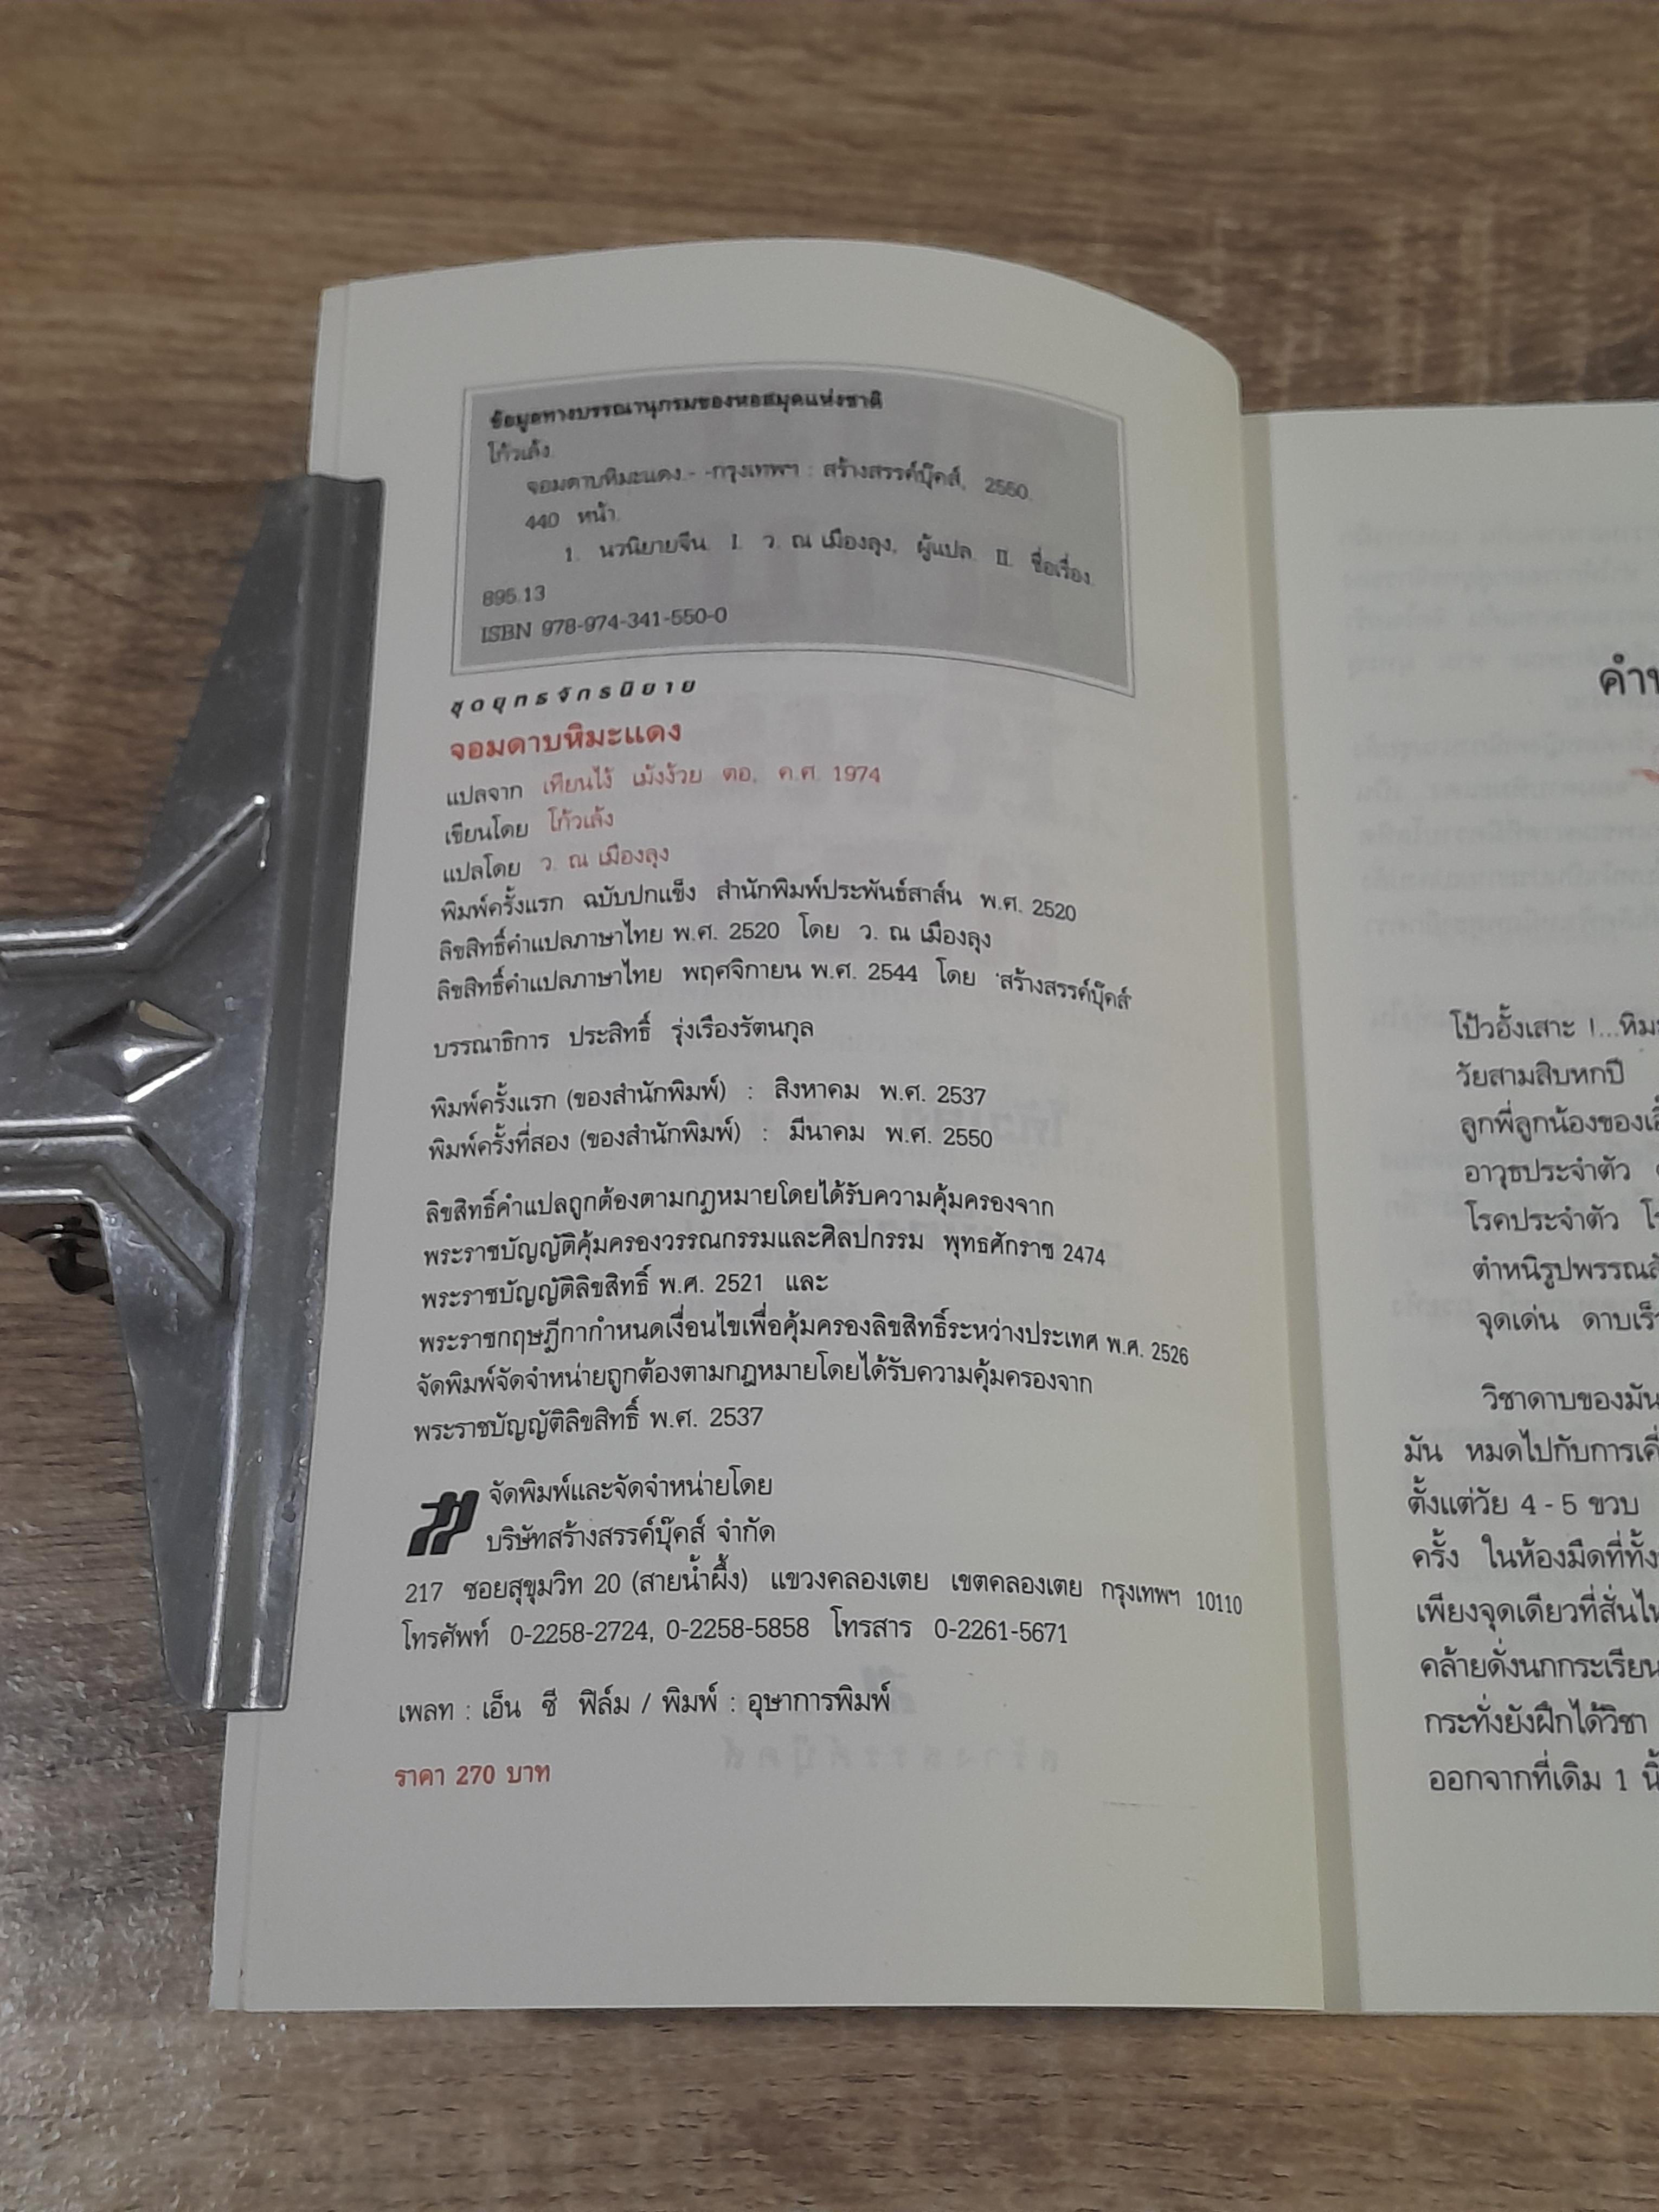 ข้อมูลทางบรรณานุกรมของหอสมุดแห่งชาติ
โก้วเล้ง.
จอมดาบหิมะแดง.- -กรุงเทพฯ : สร้างสรรค์บุ๊คส์, 2550.
440 หน้า.
1. นวนิยายจีน. I. ว. ณ เมืองลุง, ผู้แปล. II. ชื่อเรื่อง.
895.13
ISBN 978-974-341-550-0
ชุดยุทธจักรนิยาย
จอมดาบหิมะแดง
แปลจาก เทียนไง้ เม้งง้วย ตอ, ค.ศ. 1974
เขียนโดย โก้วเล้ง
แปลโดย ว. ณ เมืองลุง
พิมพ์ครั้งแรก ฉบับปกแข็ง สำนักพิมพ์ประพันธ์สาส์น พ.ศ. 2520
ลิขสิทธิ์คำแปลภาษาไทย พ.ศ. 2520 โดย ว. ณ เมืองลุง
ลิขสิทธิ์คำแปลภาษาไทย พฤศจิกายน พ.ศ. 2544 โดย 'สร้างสรรค์บุ๊คส์'
บรรณาธิการ ประสิทธิ์ รุ่งเรืองรัตนกุล
พิมพ์ครั้งแรก (ของสำนักพิมพ์) : สิงหาคม พ.ศ. 2537
พิมพ์ครั้งที่สอง (ของสำนักพิมพ์) : มีนาคม พ.ศ. 2550
ลิขสิทธิ์คำแปลถูกต้องตามกฎหมายโดยได้รับความคุ้มครองจาก
พระราชบัญญัติคุ้มครองวรรณกรรมและศิลปกรรม พุทธศักราช 2474
พระราชบัญญัติลิขสิทธิ์ พ.ศ. 2521 และ
พระราชกฤษฎีกากำหนดเงื่อนไขเพื่อคุ้มครองลิขสิทธิ์ระหว่างประเทศ พ.ศ. 2526
จัดพิมพ์จัดจำหน่ายถูกต้องตามกฎหมายโดยได้รับความคุ้มครองจาก
พระราชบัญญัติลิขสิทธิ์ พ.ศ. 2537
จัดพิมพ์และจัดจำหน่ายโดย
บริษัทสร้างสรรค์บุ๊คส์ จำกัด
217 ซอยสุขุมวิท 20 (สายน้ำผึ้ง) แขวงคลองเตย เขตคลองเตย กรุงเทพฯ 10110
โทรศัพท์ 0-2258-2724, 0-2258-5858 โทรสาร 0-2261-5671
เพลท : เอ็น ซี ฟิล์ม / พิมพ์ : อุษาการพิมพ์
ราคา 270 บาท
โป้วอั้งเสาะ !...
วัยสามสิบหกปี
ลูกพี่ลูกน้องของ
อาวุธประจำตัว
โรคประจำตัว
ตำหนิรูปพรรณ
จุดเด่น ดาบเร็ว
วิชาดาบของมัน
มัน หมดไปกับการ
ตั้งแต่วัย 4 - 5 ขวบ
ครั้ง ในห้องมืดที่ทั้ง
เพียงจุดเดียวที่สั่นไหว
คล้ายดั่งนกกระเรียน
กระทั่งยังฝึกได้วิชา
ออกจากที่เดิม 1 นิ้